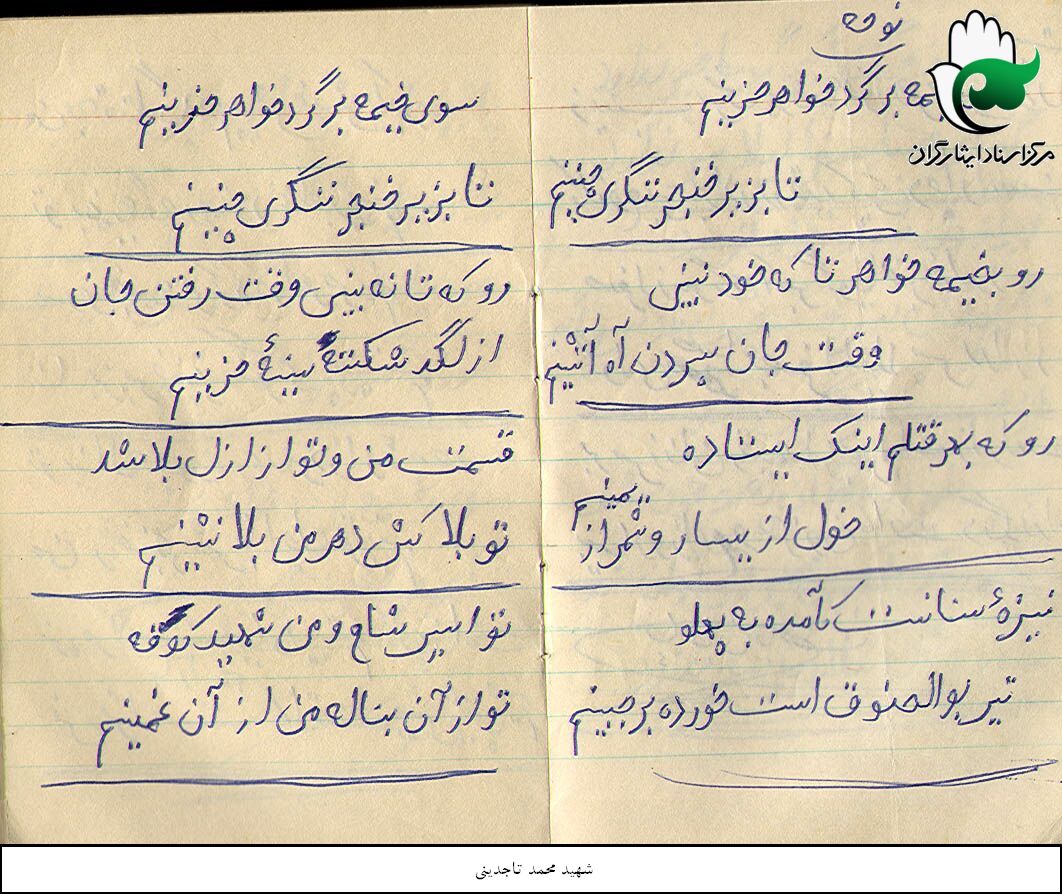 نوحه
خیمه برگرد خواهر حزینم
تا بزیر خنجر ننگری چنینم
رو بخیمه خواهر تا که خود نبینی
وقت جان سپردن آه آتشینم
رو که بهر قتلم اینک ایستاده
خولی از یسار و شمر از یمینم
نیزهٔ سنانست کآمده به پهلو
تیر بوالحنوق است خورده بر جبینم
سوی خیمه برگرد خواهر حزینم
تا بزیر خنجر ننگری چنینم
رو که تا نه بینی وقت رفتن جان
از لگد شکسته سینهٔ حزینم
قسمت من و تو از ازل بلا شد
تو بلا کش دهر من بلا نشینم
تو اسیر شام و من شهید کوفه
تو از آن بناله من از آن غمینم
مرکز اسناد ایثارگران
شهید محمد تاجدینی